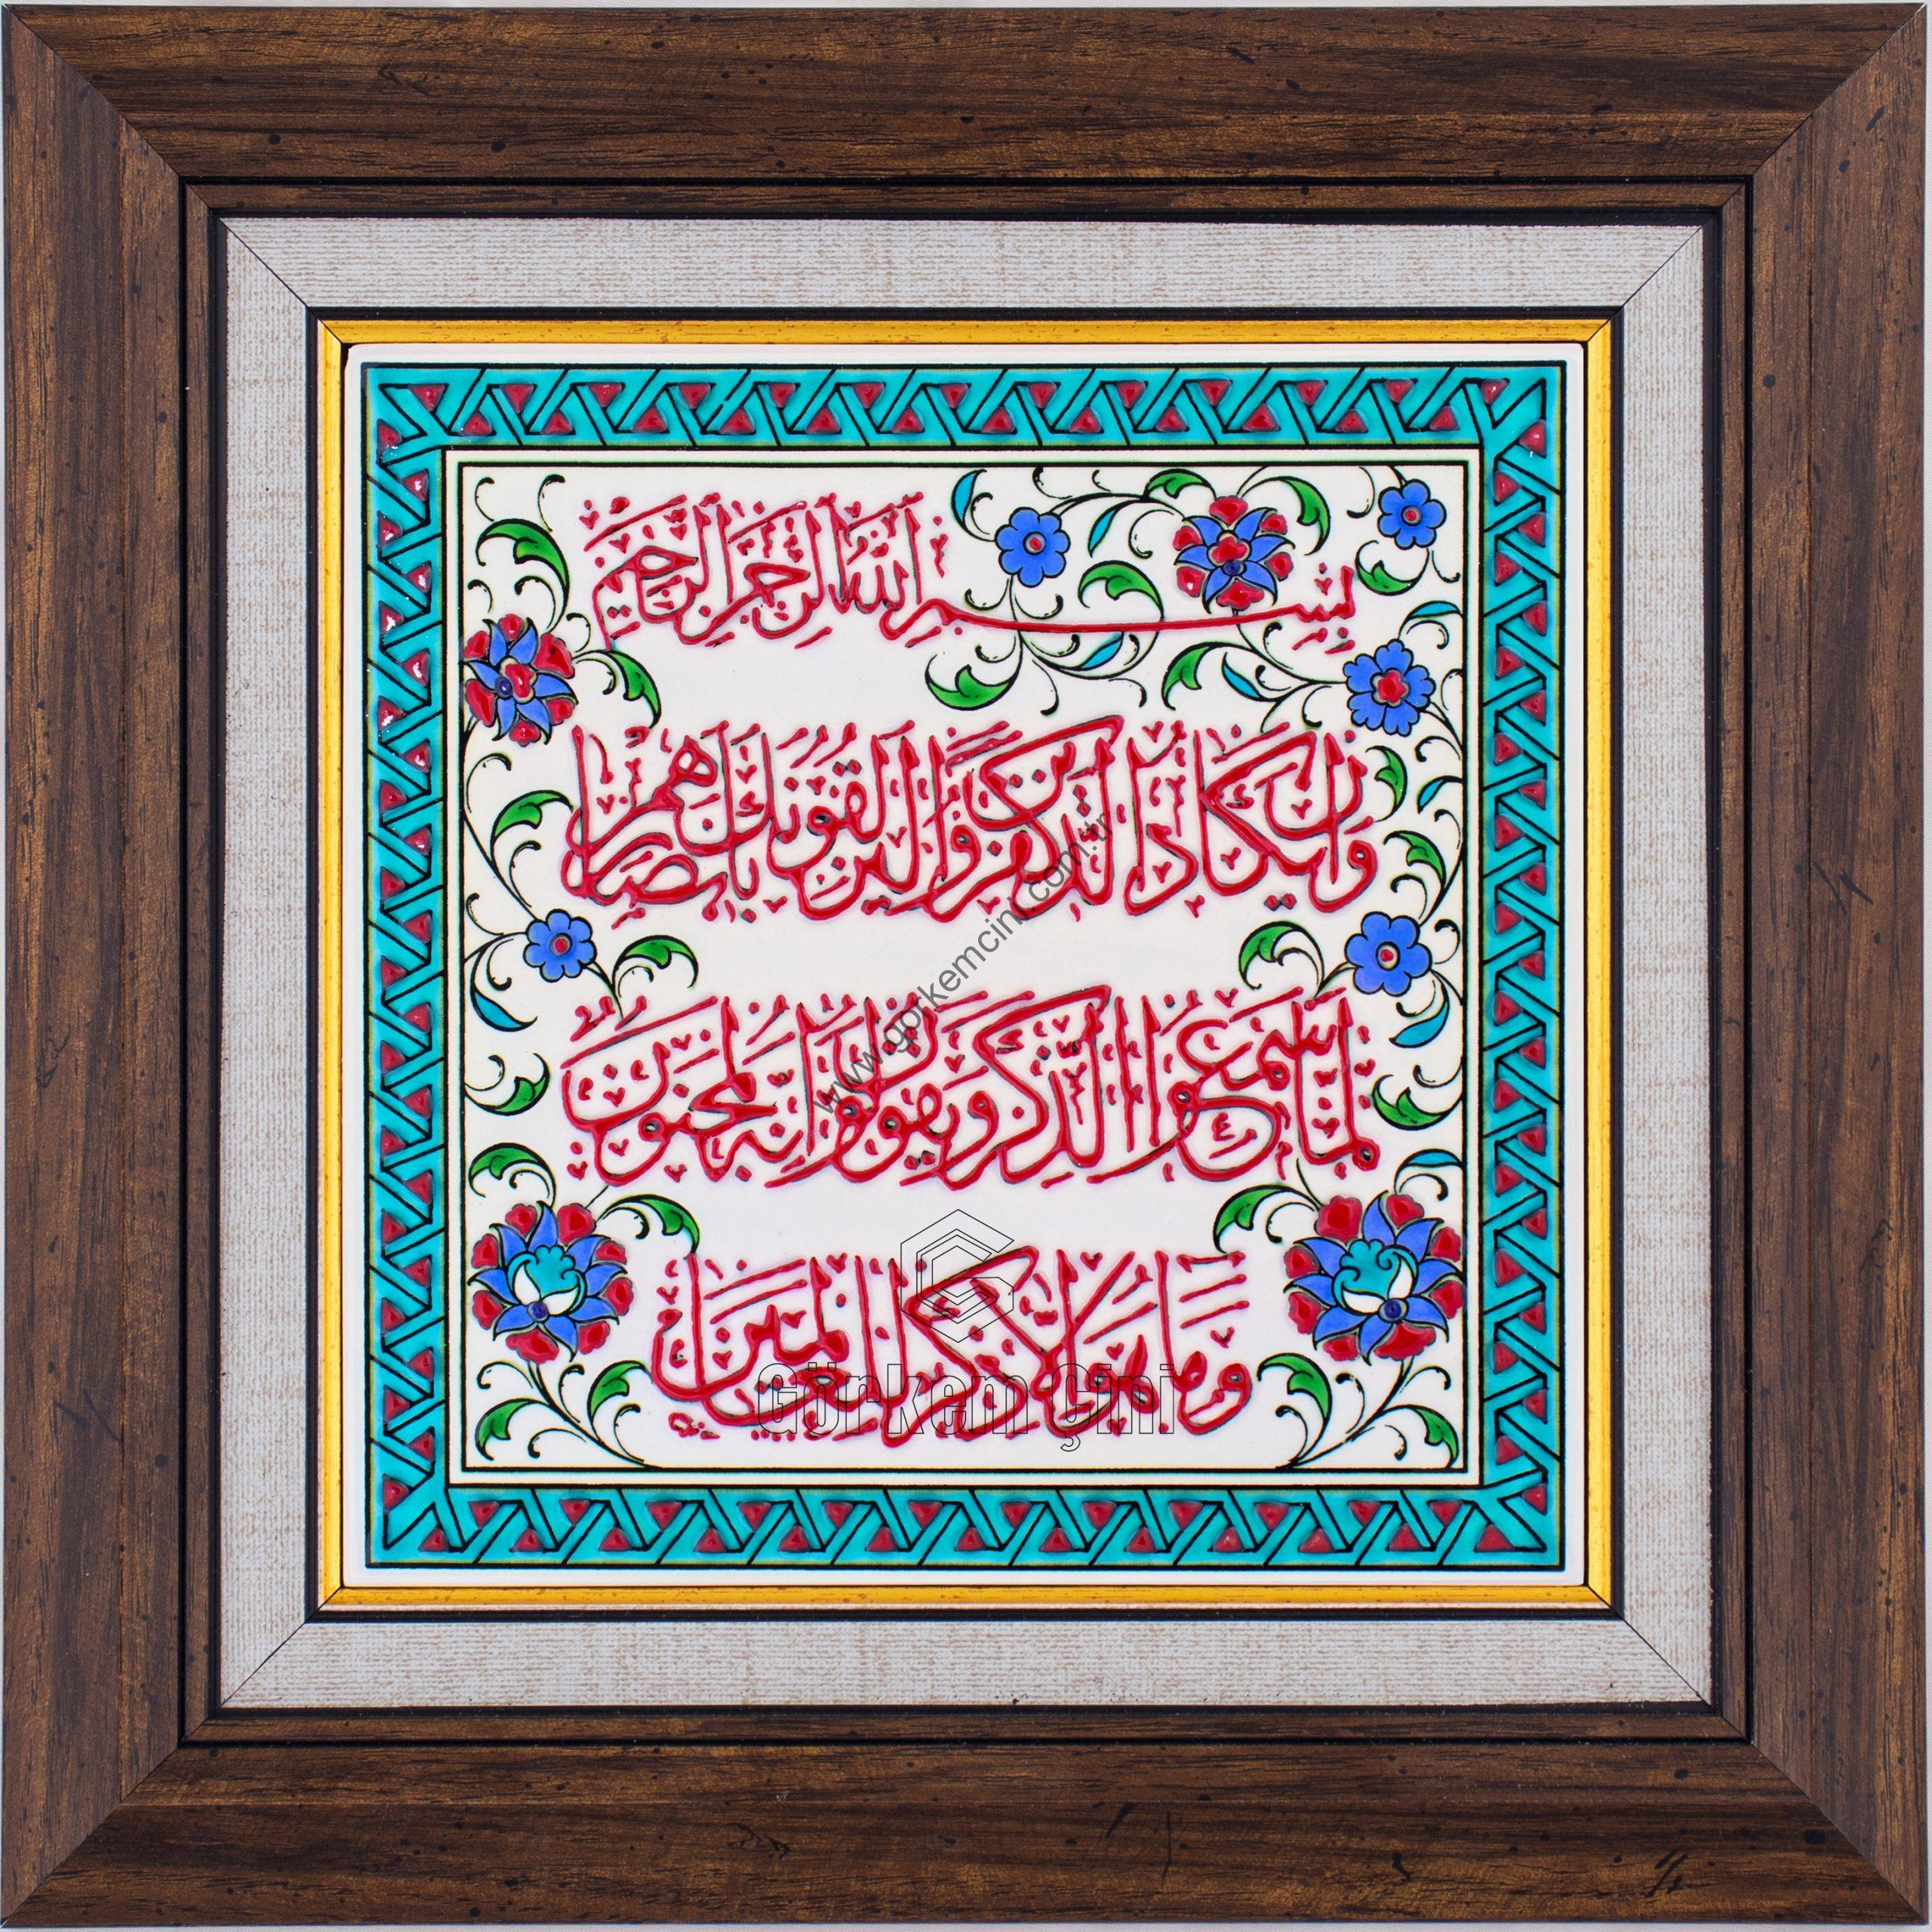 بِسْمِ اللّٰهِ الرَّحْمٰنِ الرَّحِيمِ
وَاِنْ يَكَادُ الَّذِينَ كَفَرُوا لَيُزْلِقُونَكَ بِاَبْصَارِهِمْ
لَمَّا سَمِعُوا الذِّكْرَ وَيَقُولُونَ اِنَّهُ لَمَجْنُونٌ
وَمَا هُوَ اِلَّا ذِكْرٌ لِلْعَالَمِينَ
www.gorkemcini.com.tr
Görkem Çini